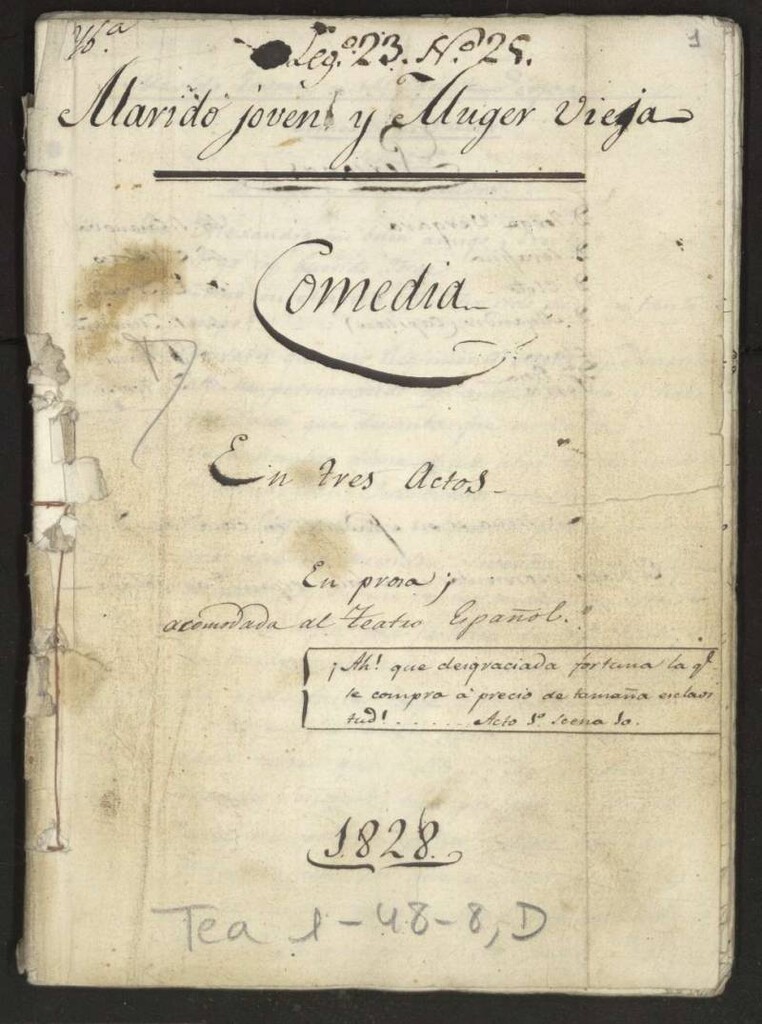 1
Leg.º 23. N.º 25.
Marido joven y Muger vieja
Comedia
En tres Actos
En prosa;
acomodada al Teatro Español.
¡Ah! que desgraciada fortuna la q.e
se compra á precio de tamaña esclavi
tud! . . . . . . Acto 1º scena 10.
1828.
Tea 1-48-8, D